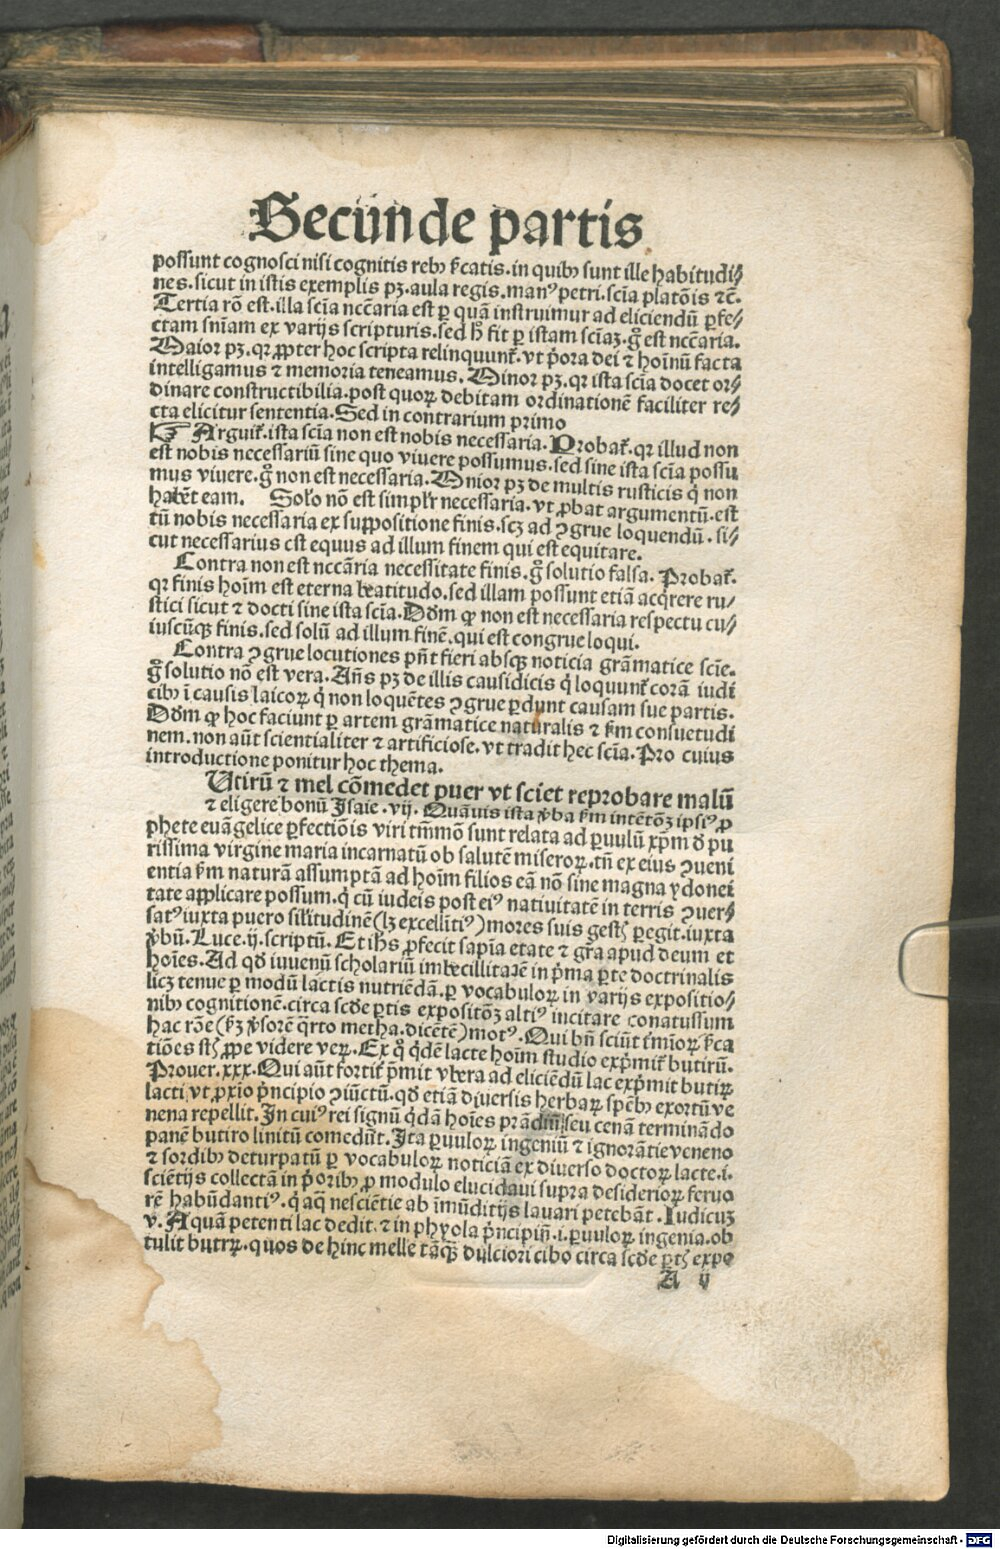 Secunde partis
possunt cognosci nisi cognitis rebꝰ ẜcatis.in quibꝰ sunt ille habitudi⸗
nes.sicut in istis exemplis pꝫ.aula regis.manꝰ petri.sciā platōis ⁊c̄.
Tertia rō est.illa sciā nccāria est ꝑ quā instruimur ad eliciendū ꝑfe⸗
ctam snīam ex varijs scripturis.sed h̄ fit ꝑ istam sciāꝫ.gͦ est nccāria.
Maior pꝫ.qr ꝓpter hoc scripta relinquunt᷑.vt p̄ora dei ⁊ hoīnū facta
intelligamus ⁊ memoria teneamus. Minor pꝫ.qr ista sciā docet or⸗
dinare constructibilia.post quoꝝ debitam ordinationē faciliter re⸗
cta elicitur sententia.Sed in contrarium primo
☞ Arguit᷑.ista sciā non est nobis necessaria.Probat᷑.qr illud non
est nobis necessariū sine quo viuere possumus.sed sine ista sciā possu
mus viuere.gͦ non est necessaria. Minor pꝫ de multis rusticis q̇ non
habēt eam. Solo nō est simplr̄ necessaria.vt ꝓbat argumentū.est
tn̄ nobis necessaria ex suppositione finis.scꝫ ad ꝯgrue loquendū.si⸗
cut necessarius est equus ad illum finem qui est equitare.
Contra non est nccāria necessitate finis.gͦ solutio falsa. Probat᷑.
qr finis hoīm est eterna beatitudo.sed illam possunt etiā acq̇rere ru⸗
stici sicut ⁊ docti sine ista sciā.Dōm ꝙ non est necessaria respectu cu⸗
iuscūqꝫ finis.sed solū ad illum finē.qui est congrue loqui.
Contra ꝯgrue locutiones pn̄t fieri absqꝫ noticia grāmatice scīe.
gͦ solutio nō est vera.Añs pꝫ de illis causidicis q̇ loquunt᷑ corā iudi
cibꝰ ī causis laicoꝝ q̇ non loquētes ꝯgrue ꝑdunt causam sue partis.
Dōm ꝙ hoc faciunt ꝑ artem grāmatice naturalis ⁊ ẜm consuetudi
nem.non aūt scientialiter ⁊ artificiose.vt tradit hec sciā.Pro cuius
introductione ponitur hoc thema.
Utirū ⁊ mel cōmedet puer vt sciet reprobare malū
⁊ eligere bonū Isaie.vij. Quāuis ista v̄ba ẜm intētōꝫ ipsiꝰ ꝓ
phete euāgelice ꝑfectiōis viri tm̄mō sunt relata ad ꝑuulū xp̄m ḋ pu
rissima virgine maria incarnatū ob salutē miseroꝝ.tn̄ ex eius ꝯueni
entia ẜm naturā assumptā ad hoīm filios eā nō sine magna ydonei
tate applicare possum.q̇ cū iudeis post eiꝰ natiuitatē in terris ꝯuer⸗
satꝰ iuxta puero sil̄itudinē(lꝫ excellētiꝰ)mores suis gestꝭ ꝑegit.iuxta
v̄bū.Luce.ij.scriptū. Et ihs ꝓfecit sapīa etate ⁊ gr̄a apud deum et
hoīes.Ad qḋ iuuenū scholariū imbecillitatē in p̄ma ꝑte doctrinalis
licꝫ tenue ꝑ modū lactis nutriēdā.ꝑ vocabuloꝝ in varijs expositio⸗
nibꝰ cognitionē.circa scd̄e ꝑtis expositōꝫ altiꝰ incitare conatussum
hac rōe(ẜꝫ ṗsorē q̇rto metha.dicētē)motꝰ. Qui bn̄ sciūt ẜmōꝝ ẜca
tiōes stꝭ ꝓpe videre veꝝ.Ex qͦ q̇dē lacte hoīm studio exp̄mit᷑ butirū.
Prouer.xxx.Qui aūt fortiť p̄mit vbera ad eliciēdū lac exp̄mit butiꝝ
lacti vt ꝓxīo p̄ncipio ꝯiūctū.qḋ etiā diuersis herbaꝝ spēbꝰ exortū ve
nena repellit.In cuiꝰ rei signū q̇dā hoīes prādiū seu cenā terminādo
panē butiro linitū comedūt.Ita ꝑuuloꝝ ingeniū ⁊ ignorātie veneno
⁊ sordibꝰ deturpatū ꝑ vocabuloꝝ noticiā ex diuerso doctoꝝ lacte.i.
sciētijs collectā in p̄oribꝰ ꝓ modulo elucidaui supra desiderioꝝ feruo
rē habūdantiꝰ.q̇ aq̄ nesciētie ab īmūditijs lauari petebāt.Iudicuꝫ
v.Aquā petenti lac dedit.⁊ in phyola p̄ncipiū.i.ꝑuuloꝝ ingenia.ob
tulit butꝝ.quos de hinc melle tāqꝫ dulciori cibo circa scd̄e ꝑtꝭ expo
A ij
Digitalisierung gefördert durch die Deutsche Forschungsgemeinschaft - DFG